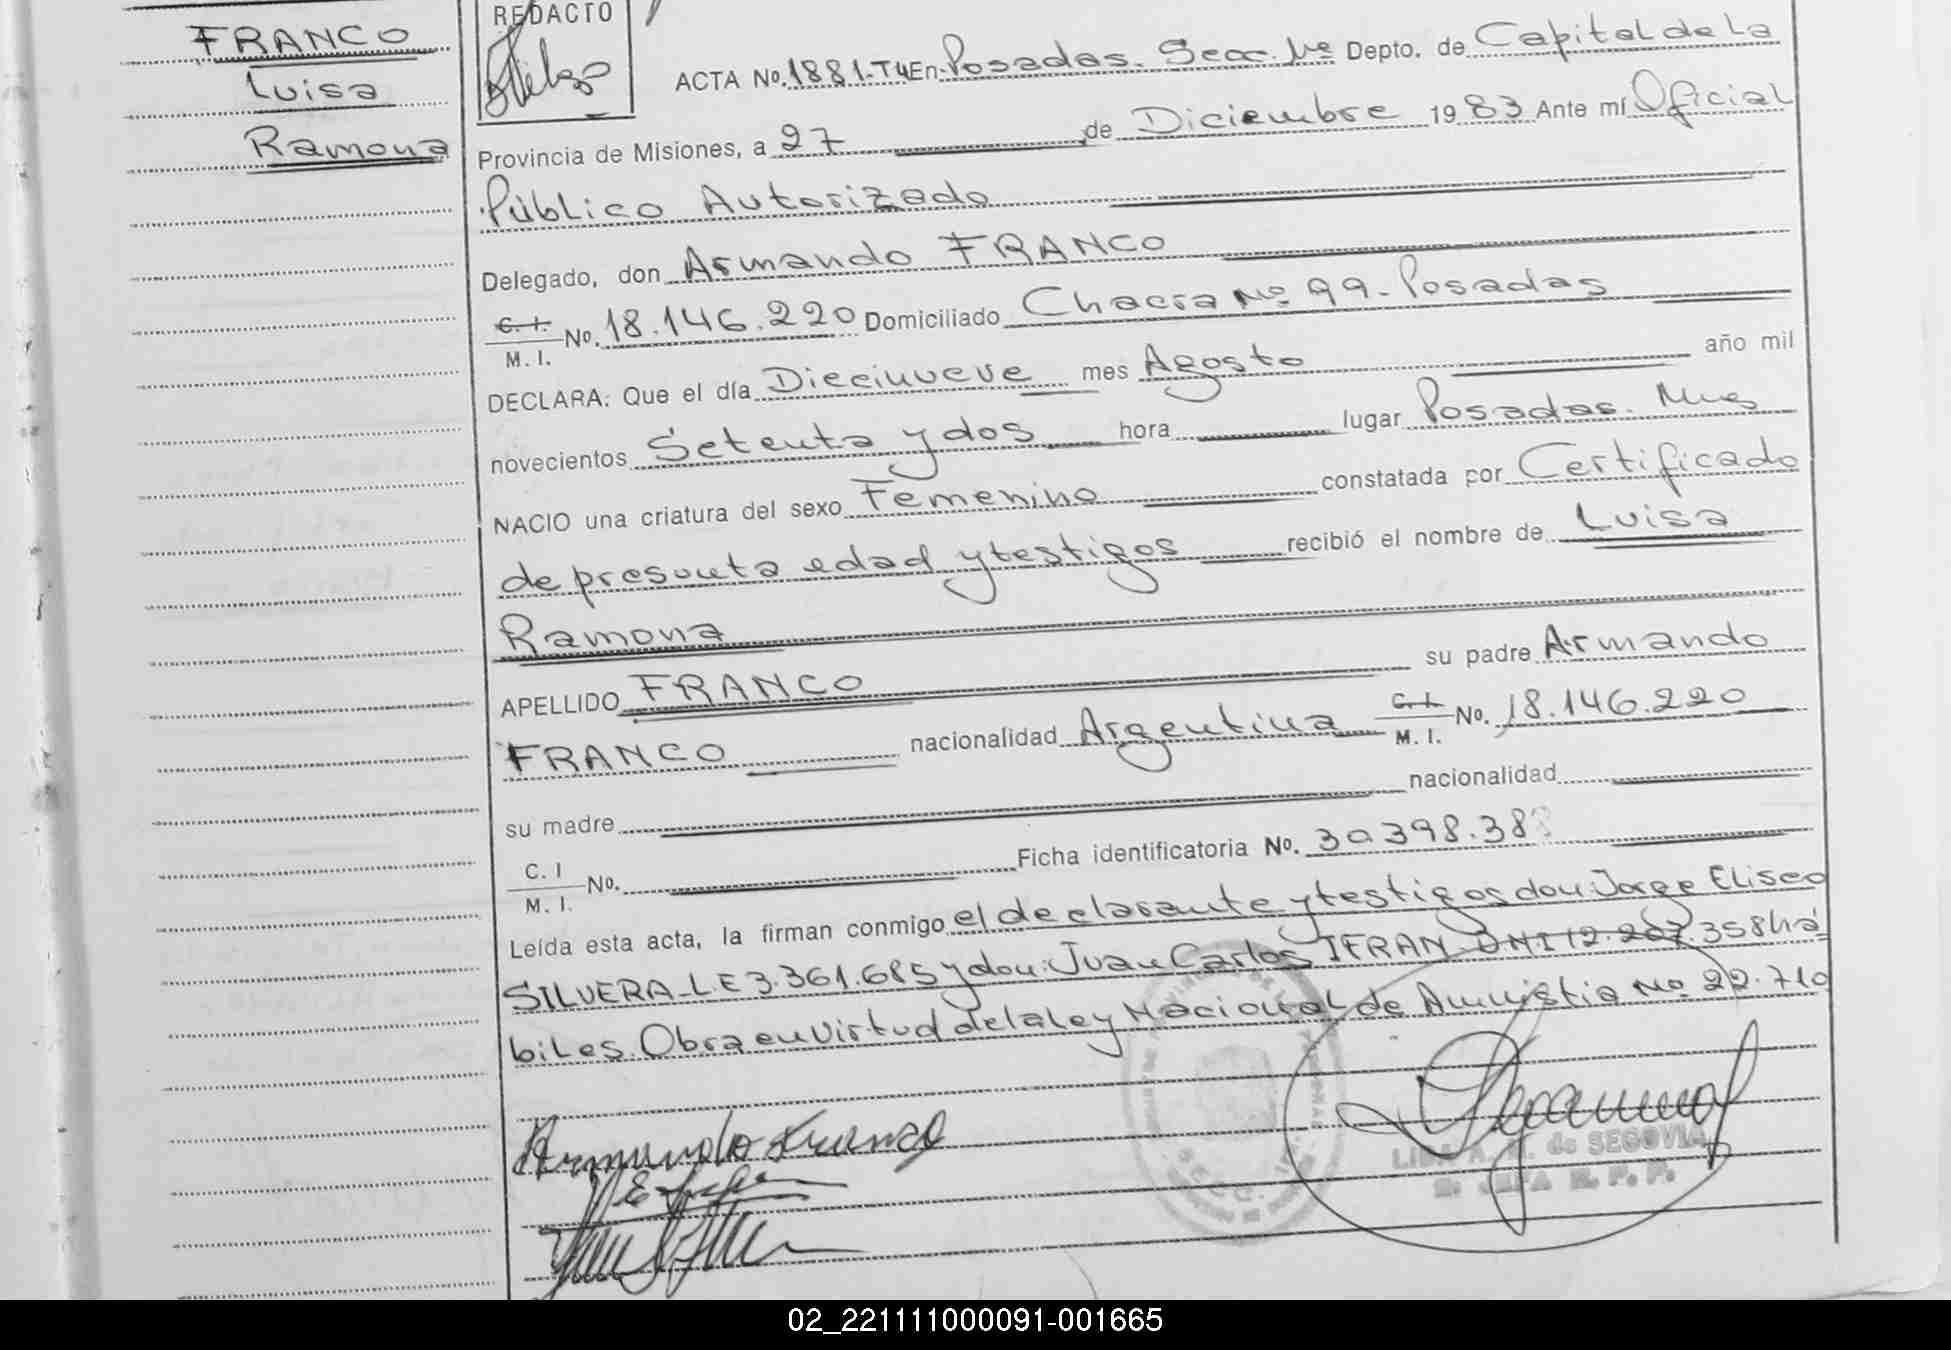 FRANCO
Luisa
Ramona
REDACTO
ACTA No. 1881-T4 En Posadas. Secc. 1ª Depto. de Capital de La
Provincia de Misiones, a 27 de Diciembre 1983 Ante mí Oficial
Público Autorizado
Delegado, don Armando FRANCO
C. I.
M. I. No. 18.146.220 Domiciliado Chacra Nº 99 - Posadas
DECLARA: Que el día Diecinueve mes Agosto año mil
novecientos Setenta y dos hora lugar Posadas. Mnes
NACIO una criatura del sexo Femenino constatada por Certificado
de presunta edad y testigos recibió el nombre de Luisa
Ramona
APELLIDO FRANCO su padre Armando
FRANCO nacionalidad Argentina C. I.
M. I. No. 18.146.220
su madre nacionalidad
C. I
M. I. No. Ficha identificatoria No. 30.398.38
Leída esta acta, la firman conmigo el declarante y testigos don Jorge Eliseo
SILVERA - LE 3.361.685 y don: Juan Carlos IFRAN DNI 12.207.358 há
biles. Obra en virtud de la ley Nacional de Amnistia Nº 22.710
Armando Franco
de SEGOVIA
02_221111000091-001665